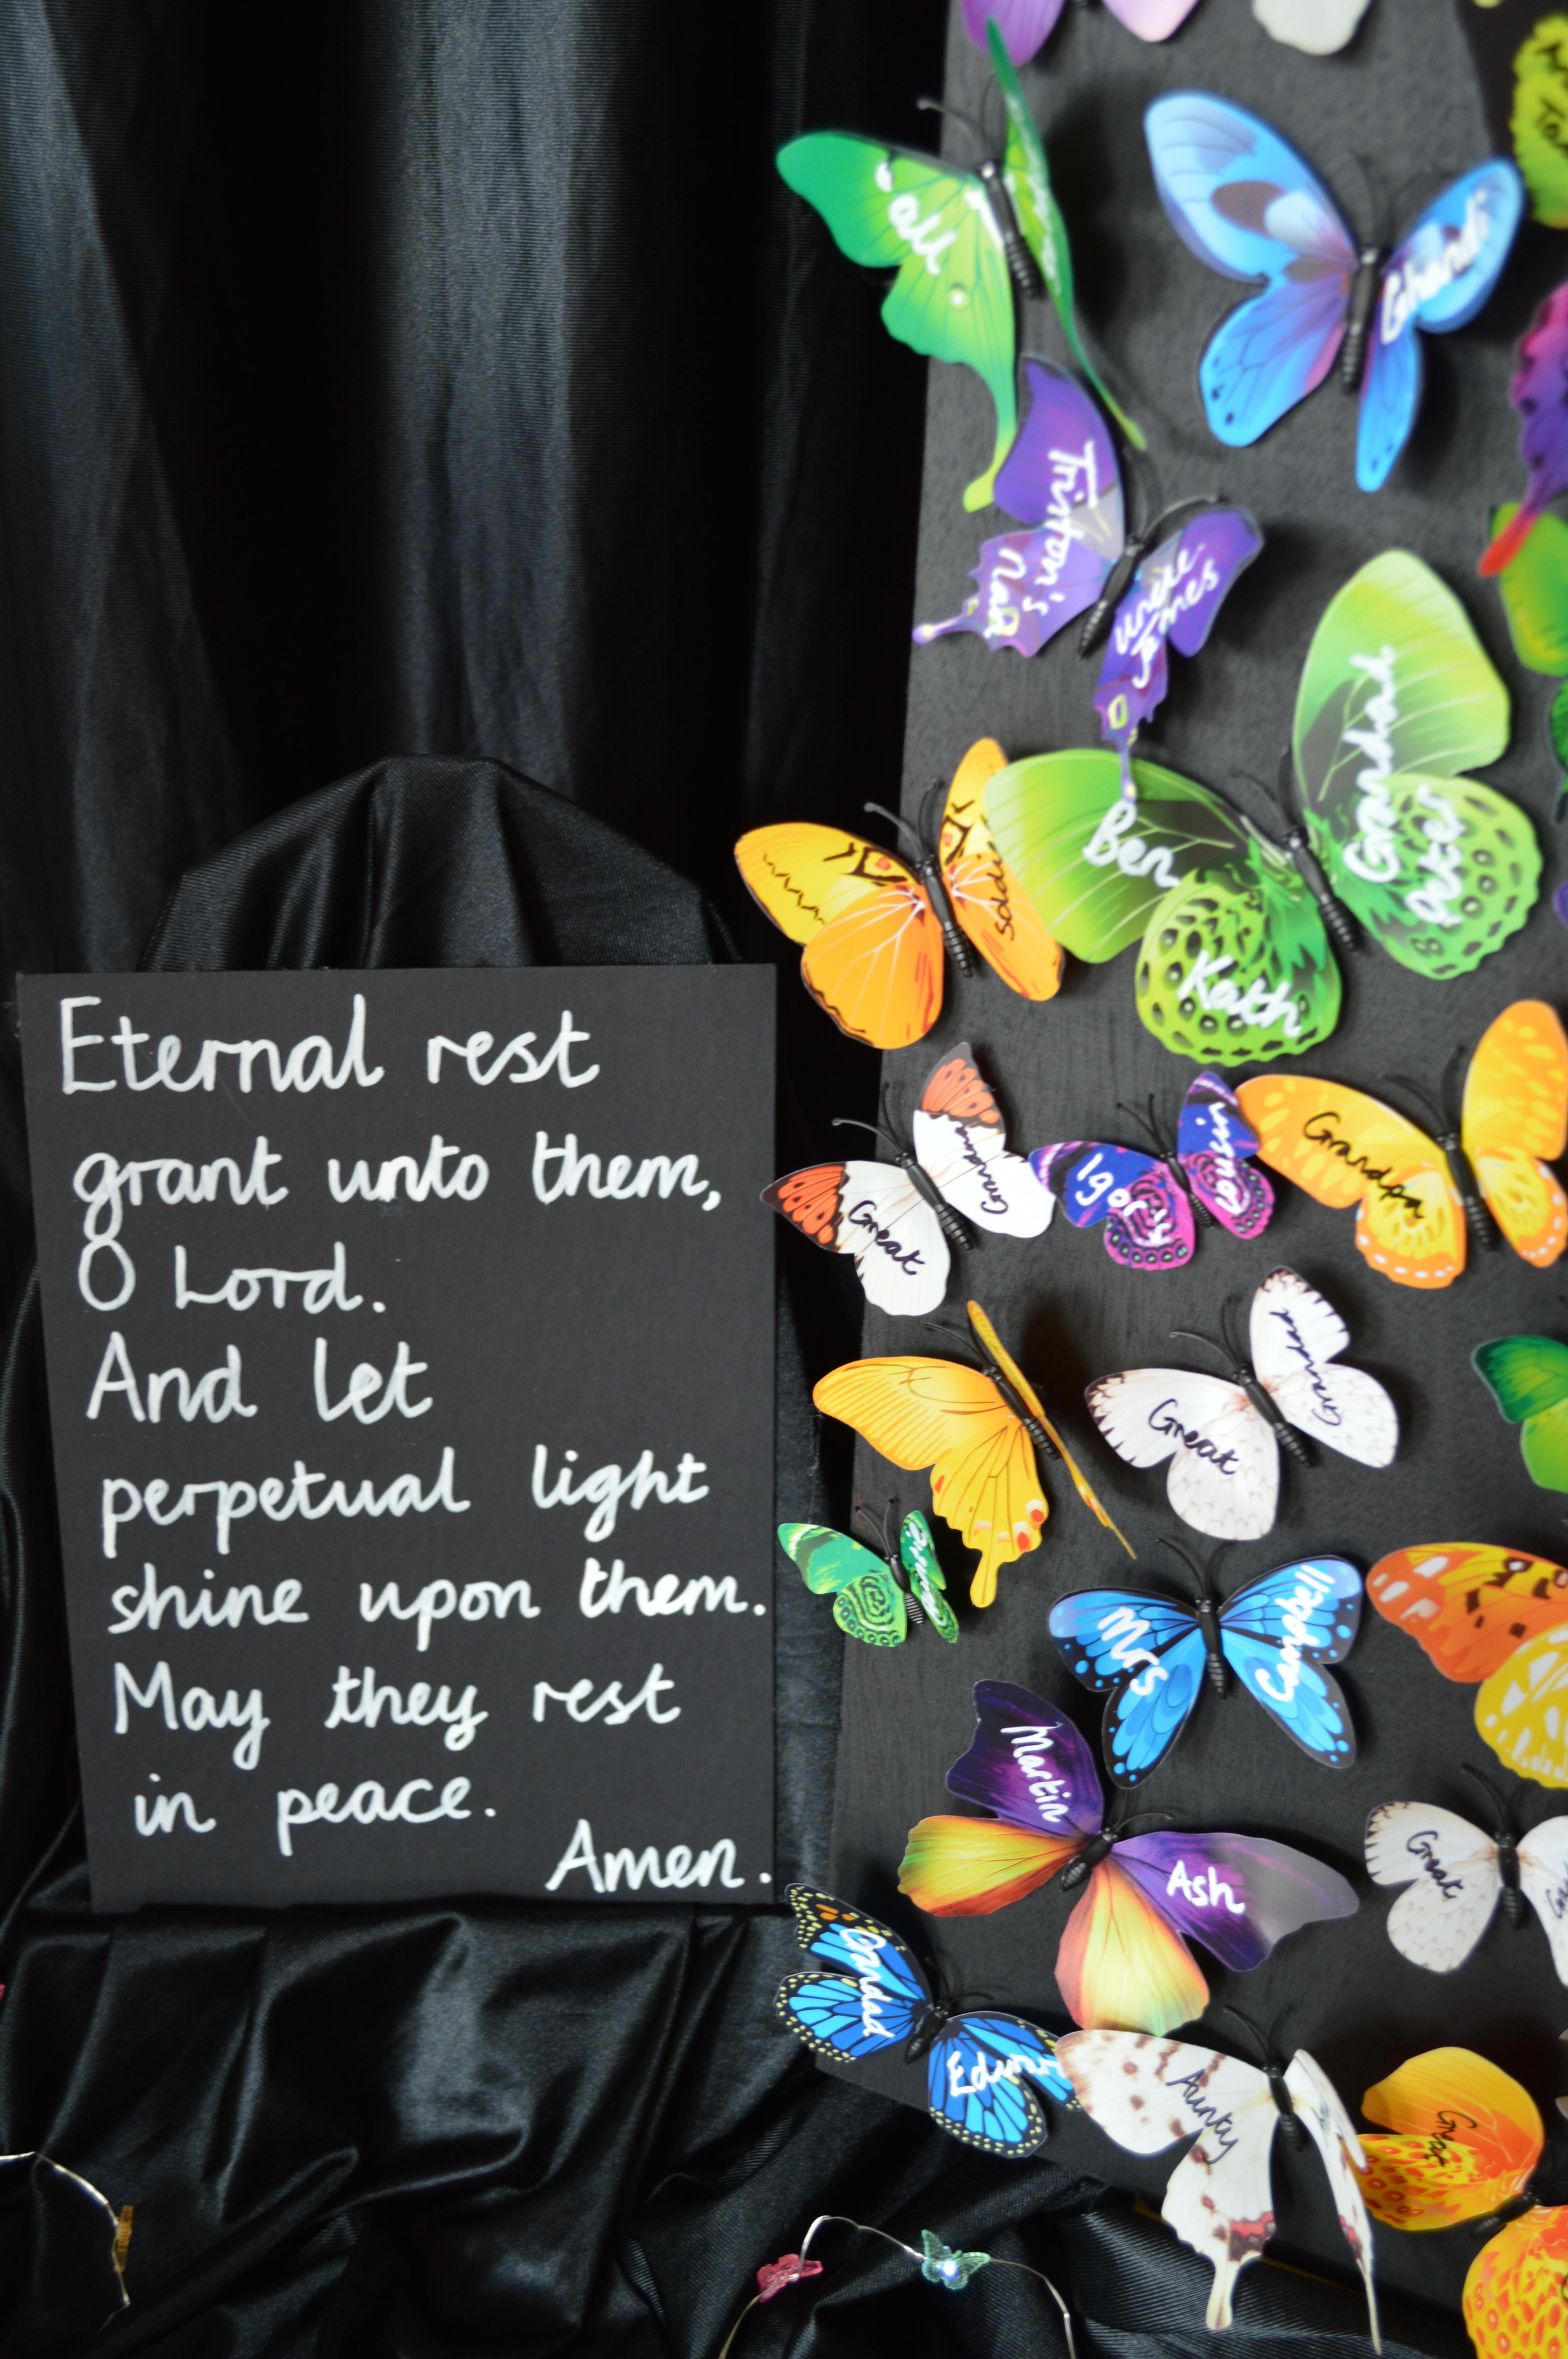 Eternal rest
grant unto them,
O Lord.
And let
perpetual light
shine upon them.
May they rest
in peace.
Amen.
all
Ghandi
Triton's
Nan
uncle
James
Grandad
Peter
Ben
Kath
Great
Grandma
Igor
cousin
Grandpa
Great
Grandad
Mrs
Campbell
Martin
Ash
Great
Grandad
Edward
Aunty
Great